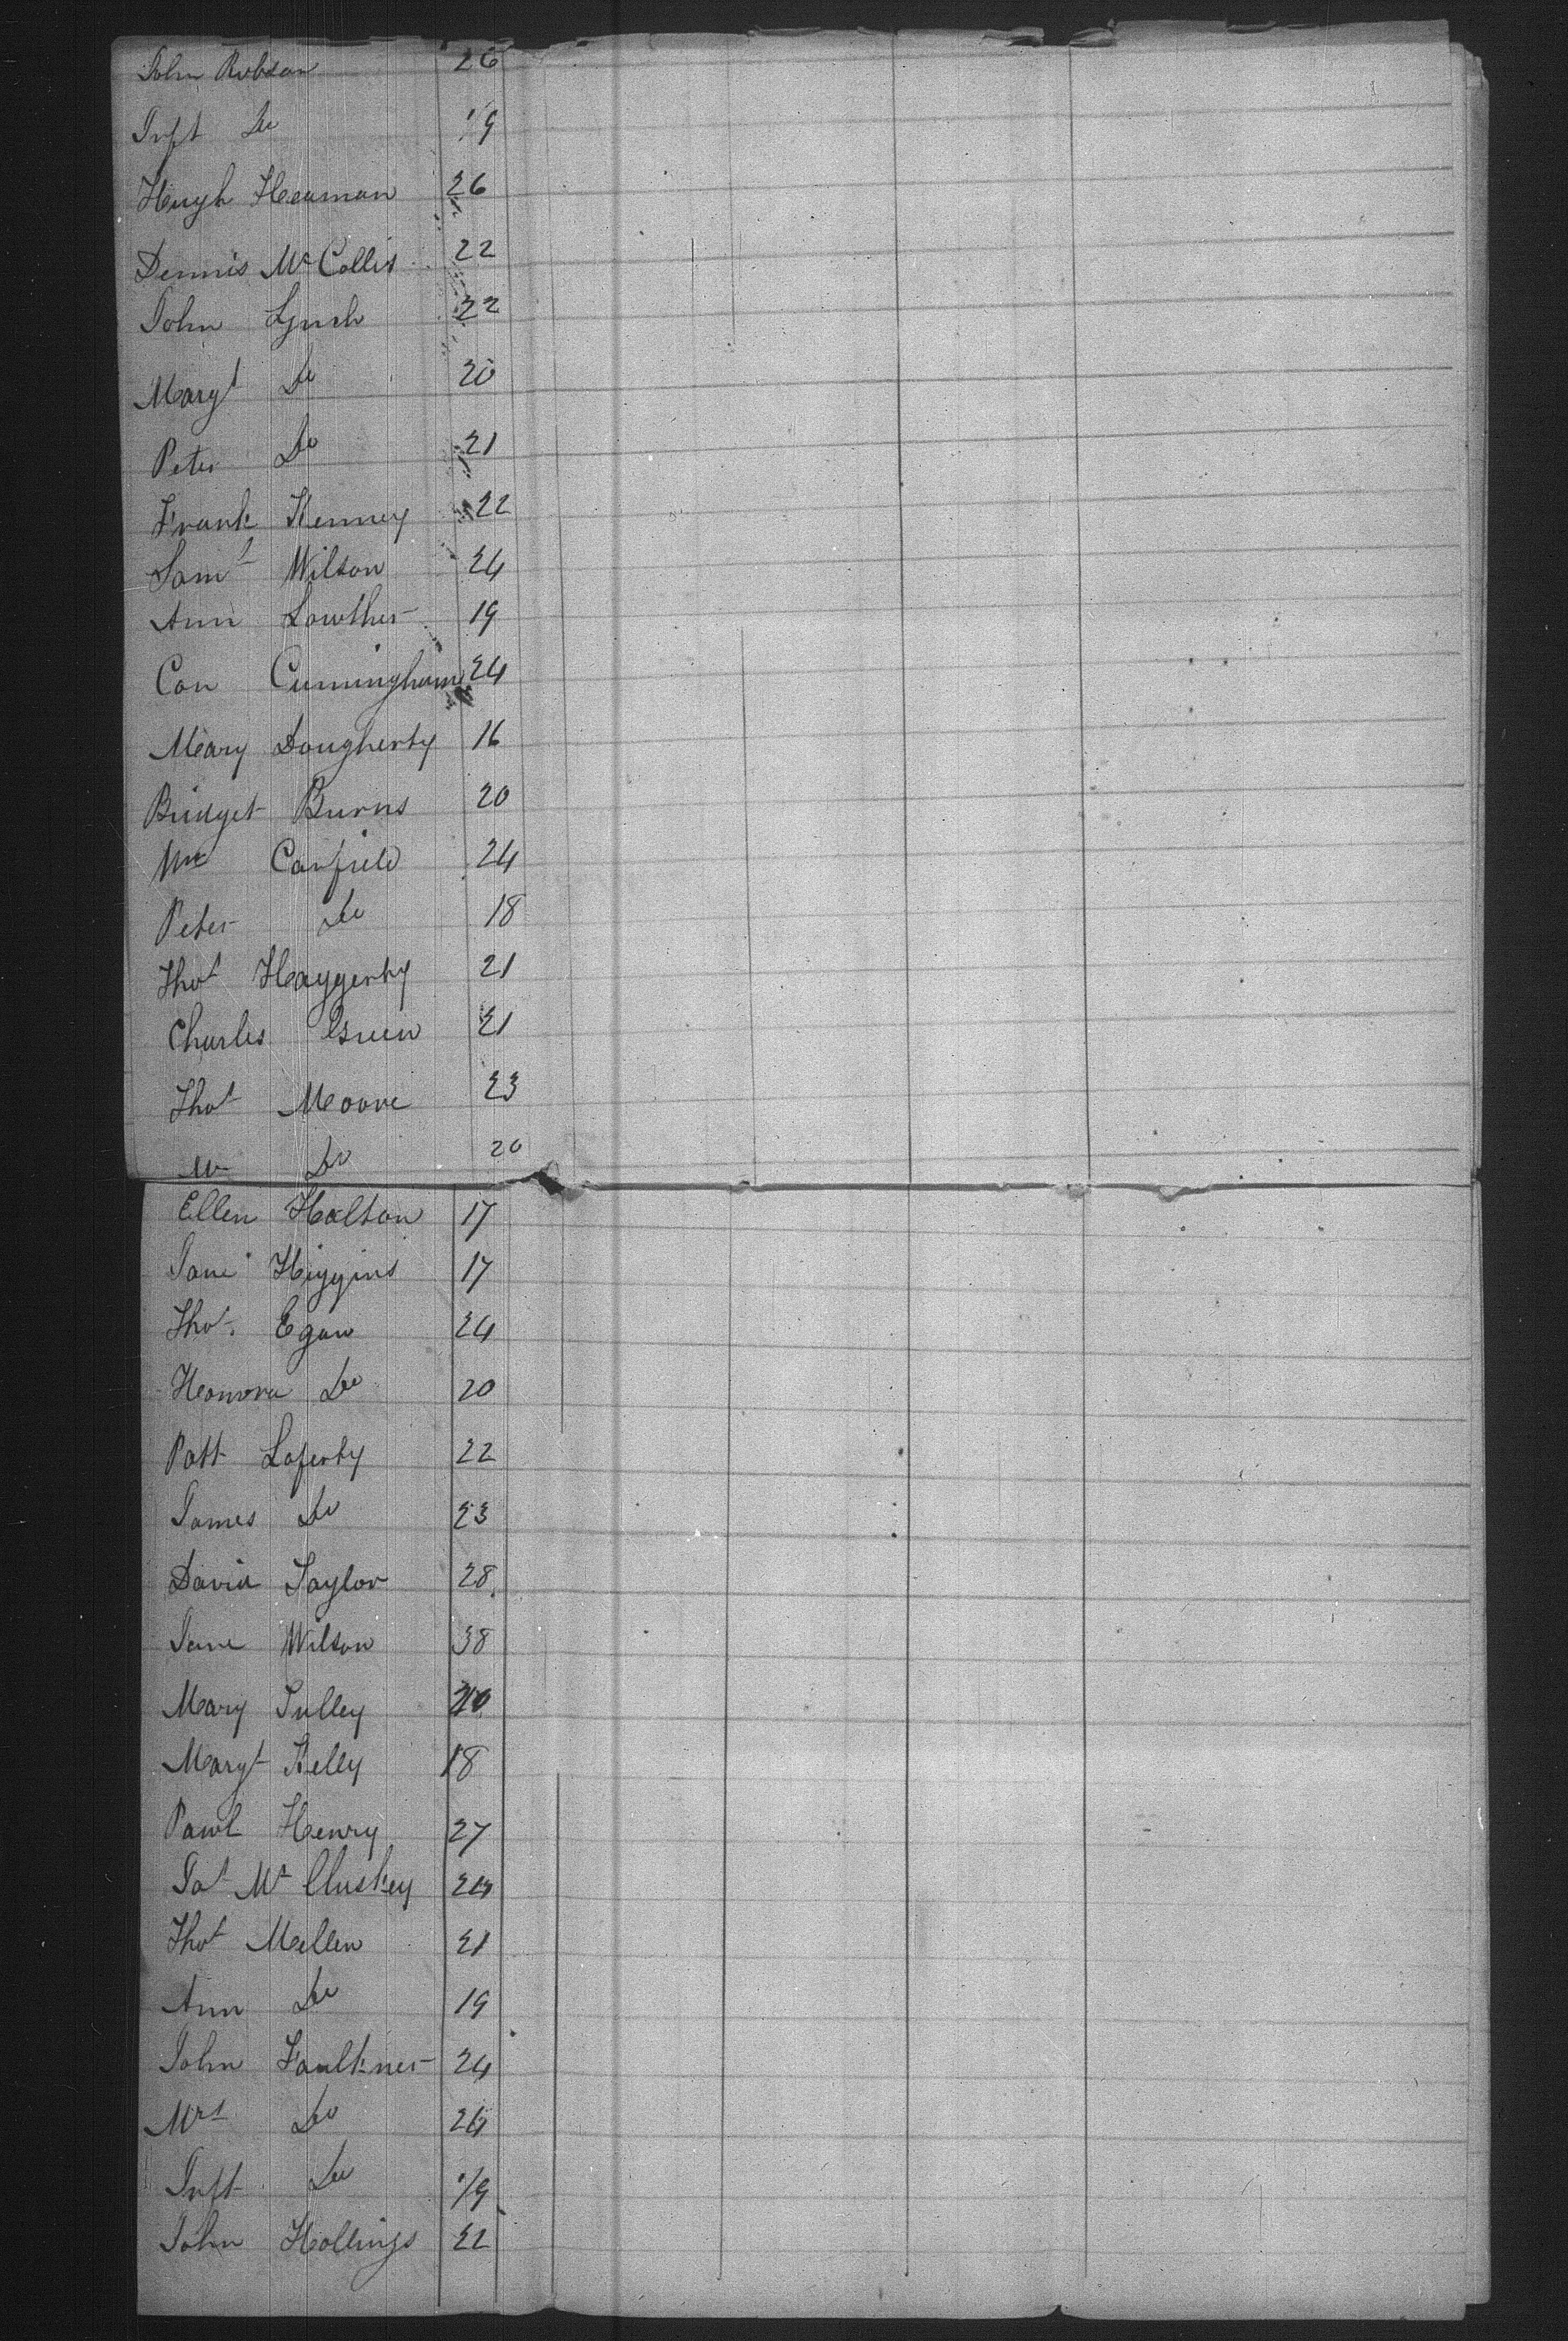 John Robson 26
Inft Do 1/9
Hugh Heaman 26
Dennis Mc Collis 22
John Lynch 22
Margt Do 20
Peter Do 21
Frank Kenney 22
Saml Wilson 24
Ann Lowther 19
Con Cuningham 24
Mary Dougherty 16
Bridget Burns 20
Wm Canfield 24
Peter Do 18
Thos Haggerty 21
Charles Green 21
Thos Moore 23
Do 20
Ellen Halton 17
Jane Higgins 17
Thos Egan 24
Honora Do 20
Patt Laferty 22
James Do 23
David Taylor 28
Jane Wilson 38
Mary Tulley 20
Margt Kelly 18
Pawl Henry 27
Jas Mc Cluskey
Thos Mellen 21
Ann Do 19
John Faulkner 24
Mrs Do 24
Inft Do 1/9
John Hollings 22